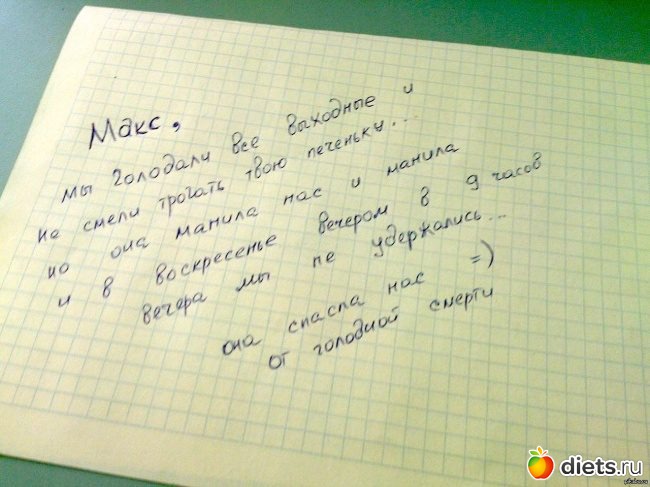 Макс,
мы голодали все выходные и
не смели трогать твою печеньку...
но она манила нас и манила
и в воскресенье вечером в 9 часов
вечера мы не удержались...
она спасла нас =)
от голодной смерти
diets.ru
pikabu.ru